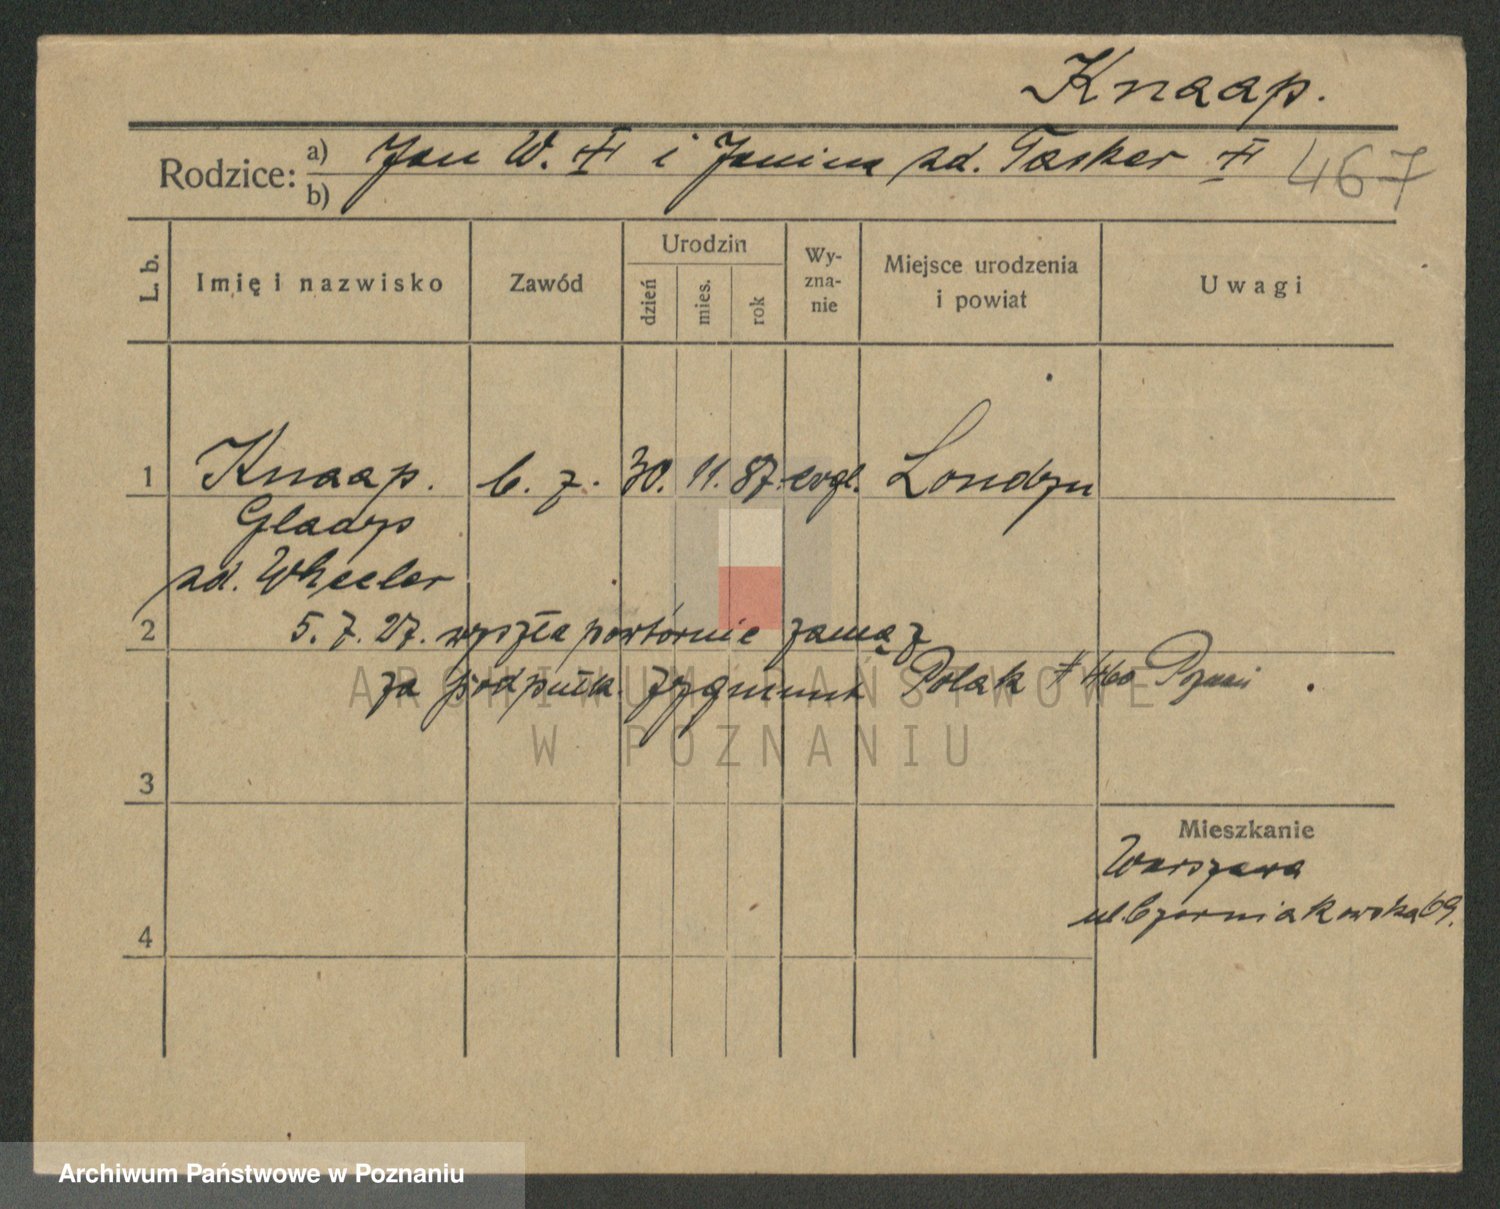 Knaap.
Rodzice: a) Jan W. i Janina zd. Tasker 467
b)
L. b. Imię i nazwisko Zawód Urodzin dzień mies. rok Wy-zna-nie Miejsce urodzenia i powiat Uwagi
1 Knaap. b. z. 30. 11. 87. evgl. Londyn
Gladys
zd. Wheeler
2 5. 7. 27. wyszła powtórnie zamąz
za podpułk. Zygmunt Polak Poznań
ARCHIWUM PAŃSTWOWE
W POZNANIU
3
Mieszkanie
Warszawa
ul. Czerniakowska 69.
4
Archiwum Państwowe w Poznaniu